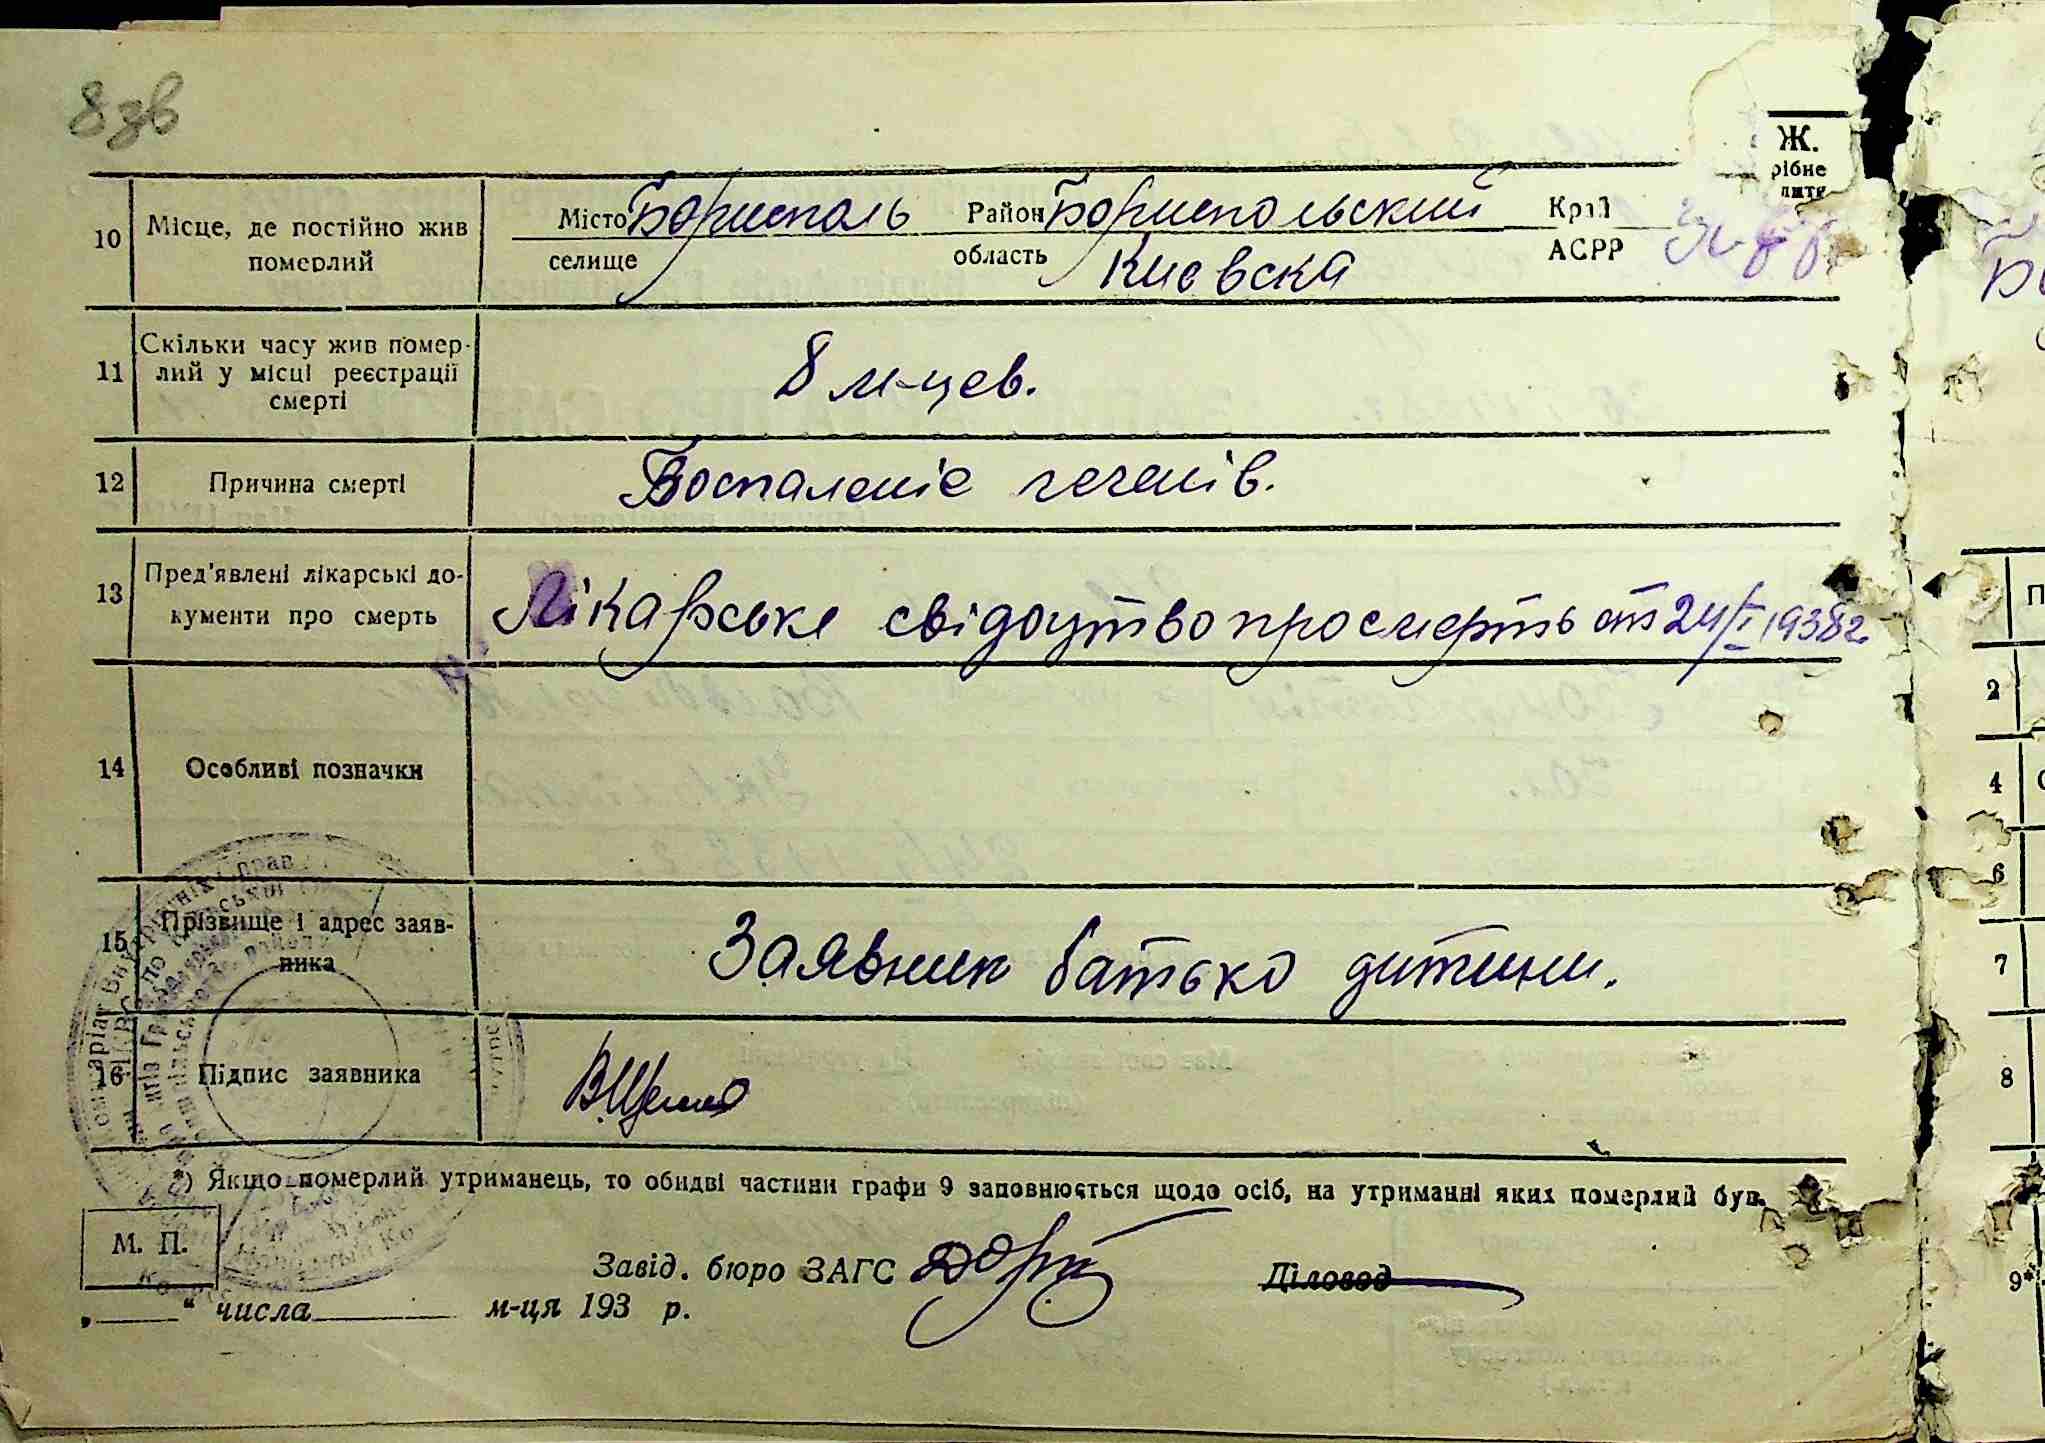 8 зв
Ж.
10 Місце, де постійно жив померлий
Місто Бориполь Район Бориспольский Край
селище область Киевска АСРР
11 Скільки часу жив помер-
лий у місці реєстрації
смерті
8 м-цев.
12 Причина смерті Воспаленіе
13 Пред'явлені лікарські до-
кументи про смерть
Лікарське свідоцтво про смерть от 24/I 1938 г.
14 Особливі позначки
15 Прізвище і адрес заяв-
ника
Заявник батько дитини.
16 Підпис заявника
*) Якщо померлий утриманець, то обидві частини графи 9 заповнюється щодо осіб, на утриманні яких померлий був.
М. П.
Завід. бюро ЗАГС Діловод
„ “ числа м-ця 193 р.
2
4
6
7
8
9*